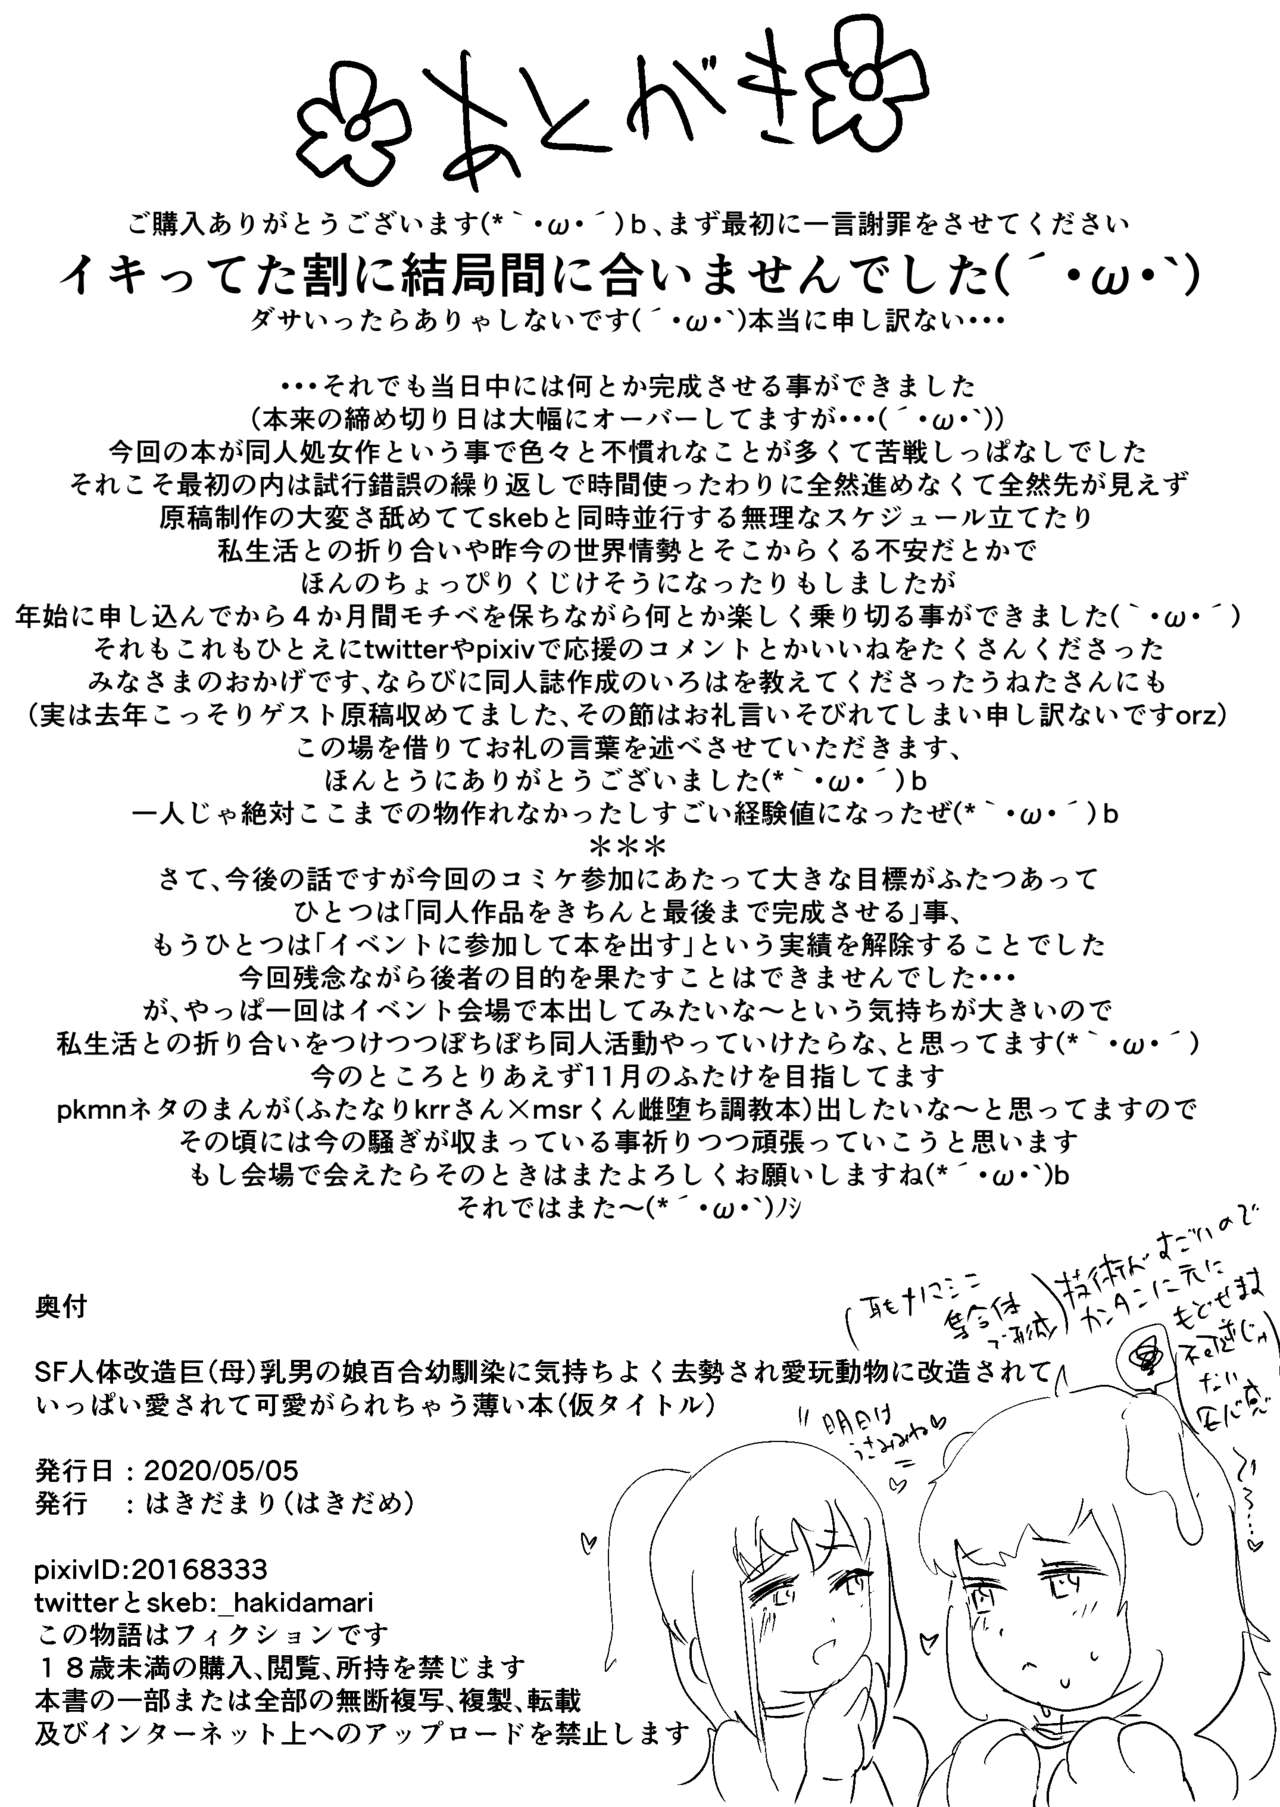 あとがき
ご購入ありがとうございます(*｀・ω・´)b、まず最初に一言謝罪をさせてください
イキってた割に結局間に合いませんでした(´・ω・`)
ダサいったらありゃしないです(´・ω・`)本当に申し訳ない・・・
・・・それでも当日中には何とか完成させる事ができました
(本来の締め切り日は大幅にオーバーしてますが・・・(´・ω・`))
今回の本が同人処女作という事で色々と不慣れなことが多くて苦戦しっぱなしでした
それこそ最初の内は試行錯誤の繰り返しで時間使ったわりに全然進めなくて全然先が見えず
原稿制作の大変さ舐めててskebと同時並行する無理なスケジュール立てたり
私生活との折り合いや昨今の世界情勢とそこからくる不安だとかで
ほんのちょっぴりくじけそうになったりもしましたが
年始に申し込んでから４か月間モチベを保ちながら何とか楽しく乗り切る事ができました(｀・ω・´)
それもこれもひとえにtwitterやpixivで応援のコメントとかいいねをたくさんくださった
みなさまのおかげです、ならびに同人誌作成のいろはを教えてくださったうねたさんにも
(実は去年こっそりゲスト原稿収めてました、その節はお礼言いそびれてしまい申し訳ないですorz)
この場を借りてお礼の言葉を述べさせていただきます、
ほんとうにありがとうございました(*｀・ω・´)b
一人じゃ絶対ここまでの物作れなかったしすごい経験値になったぜ(*｀・ω・´)b
＊＊＊
さて、今後の話ですが今回のコミケ参加にあたって大きな目標がふたつあって
ひとつは「同人作品をきちんと最後まで完成させる」事、
もうひとつは「イベントに参加して本を出す」という実績を解除することでした
今回残念ながら後者の目的を果たすことはできませんでした・・・
が、やっぱ一回はイベント会場で本出してみたいな～という気持ちが大きいので
私生活との折り合いをつけつつぼちぼち同人活動やっていけたらな、と思ってます(*｀・ω・´)
今のところとりあえず11月のふたけを目指してます
pkmnネタのまんが(ふたなりkrrさん×msrくん雌堕ち調教本)出したいな～と思ってますので
その頃には今の騒ぎが収まっている事祈りつつ頑張っていこうと思います
もし会場で会えたらそのときはまたよろしくお願いしますね(*´・ω・`)b
それではまた～(*´・ω・`)ﾉｼ
奥付
SF人体改造巨(母)乳男の娘百合幼馴染に気持ちよく去勢され愛玩動物に改造されて
いっぱい愛されて可愛がられちゃう薄い本(仮タイトル)
発行日：2020/05/05
発行　：はきだまり(はきだめ)
pixivID:20168333
twitterとskeb:_hakidamari
この物語はフィクションです
１８歳未満の購入、閲覧、所持を禁じます
本書の一部または全部の無断複写、複製、転載
及びインターネット上へのアップロードを禁止します
耳もナノマシン
集合体
で形成
技術がすごいので
カンタンに元に
もどせます
不可逆じゃ
ない
安心感
明日は
うさみみね♡